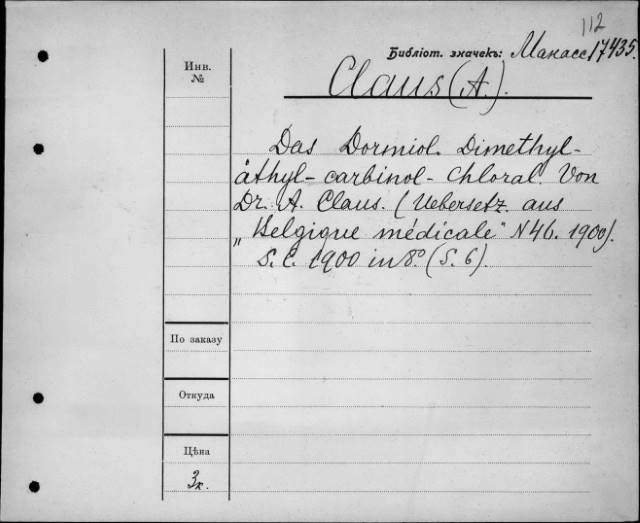 112
Библіот. значекъ: Манасс 17435.
Инв.
№
Claus (A.).
Das Dormiol. Dimethyl-
äthyl-carbinol-chloral. Von
Dr. A. Claus. (Uebersetz. aus
„Belgique médicale" N 46. 1900).
S. l. 1900 in 8° (S. 6).
По заказу
Откуда
Цѣна
3к.